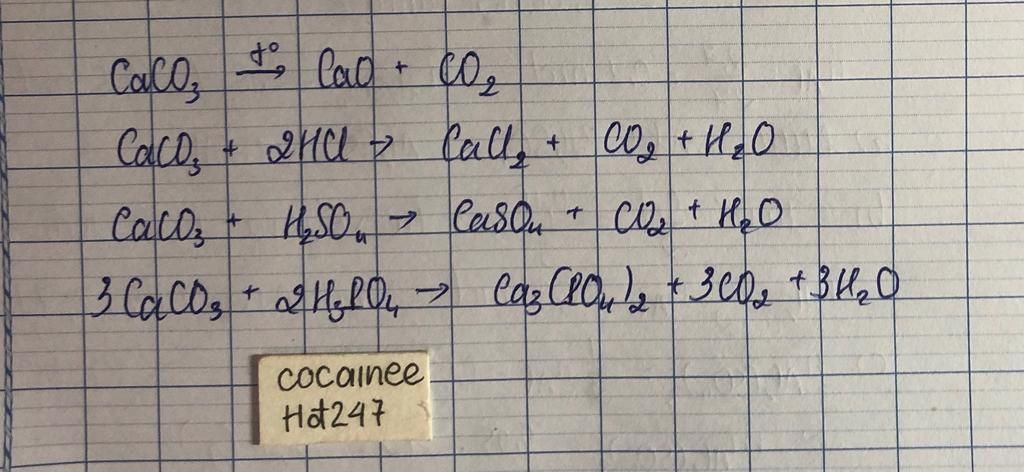 CaCO₃ t° → CaO + CO₂
CaCO₃ + 2HCl → CaCl₂ + CO₂ + H₂O
CaCO₃ + H₂SO₄ → CaSO₄ + CO₂ + H₂O
3CaCO₃ + 2H₃PO₄ → Ca₃(PO₄)₂ + 3CO₂ + 3H₂O
cocainee
Hot247